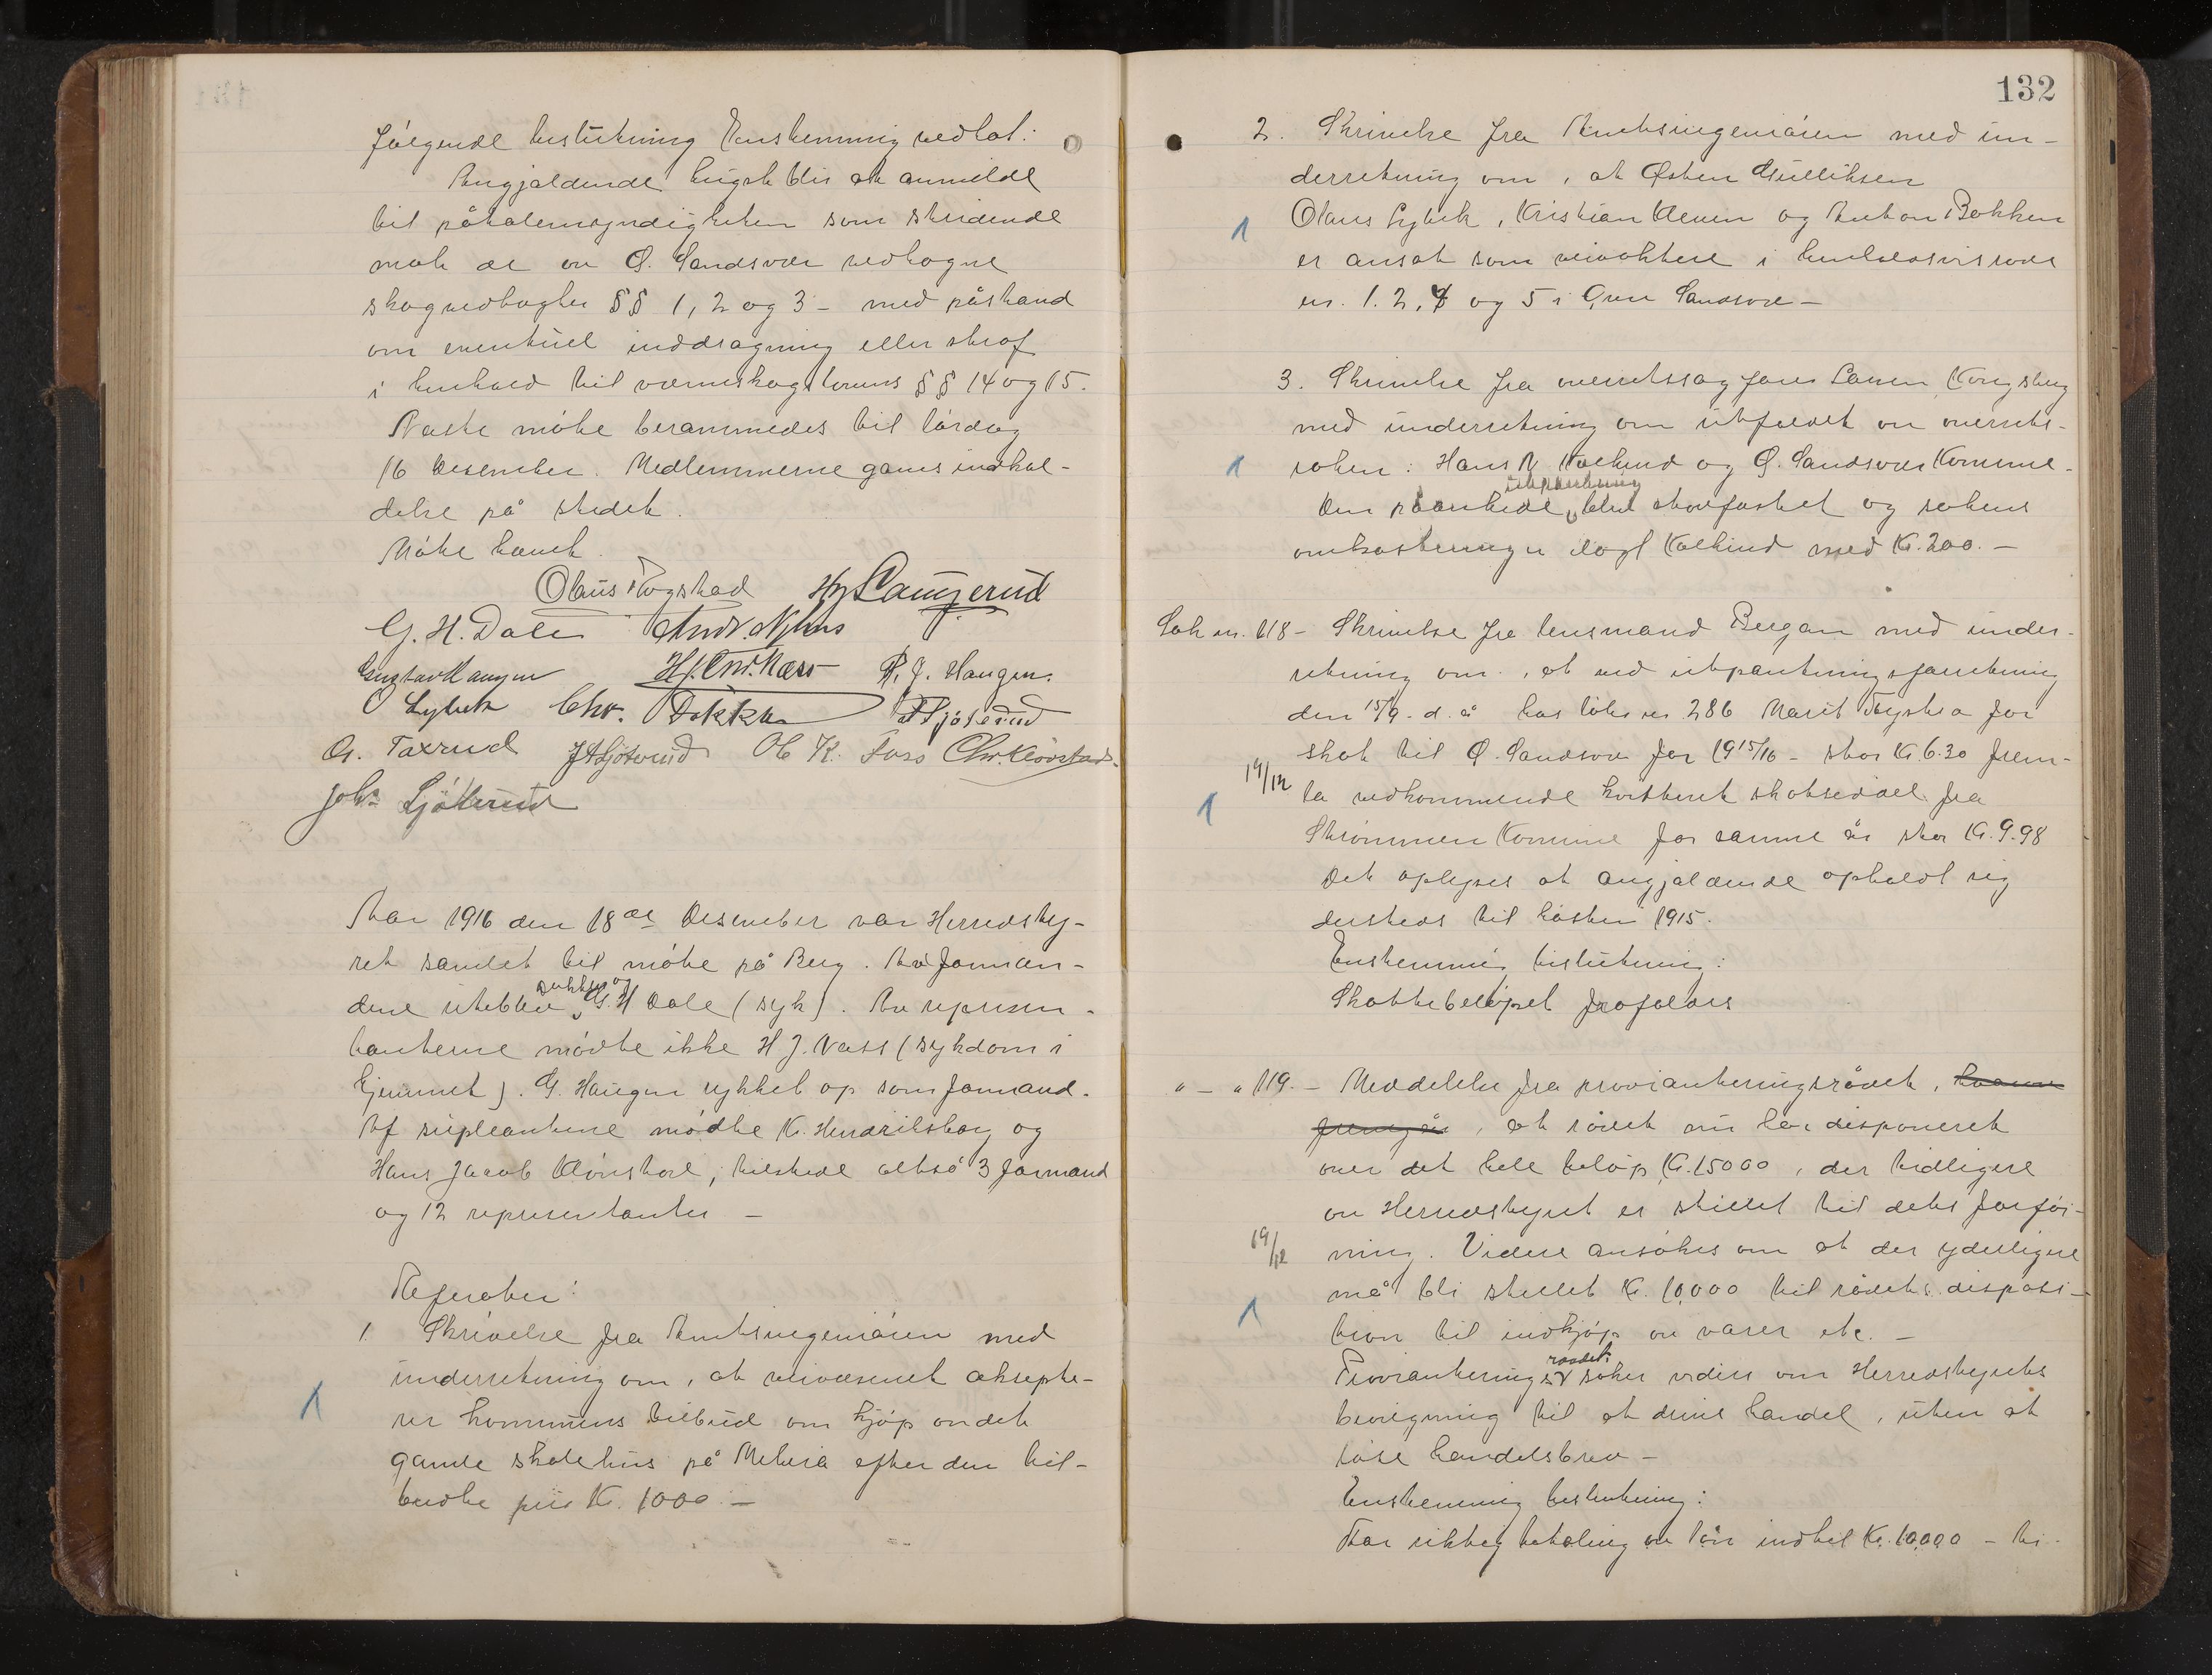 følgende beslutning Enstemmig vedtat:
Angjældende hugst blir at anmelde
til påtalemyndigheten som stridende
mot de av Ø. Sandsvær vedtagne
skogvedtægter §§ 1, 2 og 3 - med påstand
om eventuel inddragning eller straf
i henhold til værneskoglovens §§ 14 og 15.
Næste møte berammedes til lørdag
16 Desember. Medlemmerne gaves indkal-
delse på stedet.
Møte hævet.
Olaus Rogstad
G. H. Dale Andr. Nyhus
Gustav Haugen R. J. Haugen.
O Lybek Chr. Dokka
G. Taxrud Ole K. Foss Chr. Kløvstad.
Johs
Aar 1916 den 18de Desember var Herredsty-
ret samlet til møte på Berg. Av Formæn-
dene utebblev Dokken og G. H Dale (syk). Av represen-
tanterne mødte ikke H J. Næss (sykdom i
hjemmet). G. Haugen rykket op som Formand.
Af supleantene mødte K. Hendriksbøy og
Hans Jacob ; tilstede altså 3 Formænd
og 12 representanter -
Referater:
1. Skrivelse fra Amtsingeniøren med
underretning om, at veivæsenet aksepte-
rer kommunens tilbud om kjøp av det
gamle skolehus på efter den til-
budte pris Kr. 1000. -
132
2. Skrivelse fra Amtsingeniøren med un-
derretning om, at Østen Gulliksen
Olaus Lybek, Kristian Kleven og Anton Bakken
er ansat som veivoktere i henholdsvis rode
nr. 1. 2. 4 og 5 i Øvre Sandsvær -
3. Skrivelse fra overretssagfører Larsen, Kongsberg
med underretning om utfaldet av overrets-
saken: Hans N Kolkind og Ø. Sandsvær Kommune.
Den påankede utpantning blev stadfæstet og sakens
omkostninger ilagt Kolkind med Kr. 200. -
Sak nr. 118 - Skrivelse fra lensmand Bergan med under-
retning om, at ved utpantningsforretning
den 15/9 d. å hos løbenr 286 Marit for
skat til Ø. Sandsvær for 1915/16 - stor Kr. 6.30 frem-
19/12 la vedkommende kvitteret skatseddel fra
Strømmen Komune for samme år stor Kr. 9.98
Det oplyses at angjældende opholdt sig
dersteds til høsten 1915.
Enstemmig beslutning:
Skattebeløpet frafaldes
" - " 119. - Meddelelse fra provianteringsrådet,
, at rådet nu har disponeret
over det hele beløp, Kr. 15000, der tidligere
av Herredstyret er stillet til dets forføi-
19/12 ning. Videre ansøkes om at der yderligere
må bli stillet Kr. 10,000 til rådets disposi-
tion til indkjøp av varer etc. -
Provianteringsraadet søker videre om Herredstyrets
bevilgning til at drive handel, uten at
løse handelsbrev -
Enstemmig beslutning:
For riktig betaling av lån indtil Kr. 10,000 - ti-